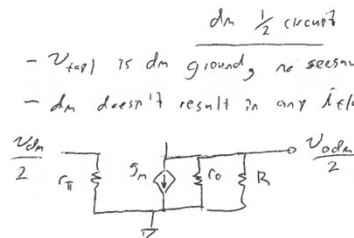 dm 1/2 circuit
- v_tail is dm ground, no
- dm doesn't result in any
v_dm/2 r_π g_m r_o R v_odm/2